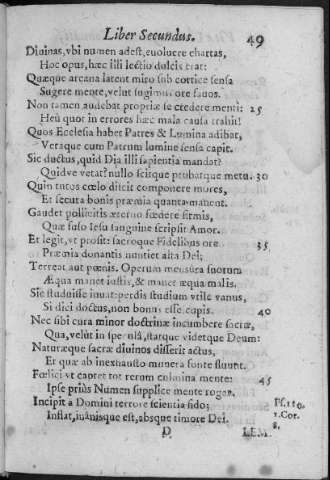 Liber Secundus. 49
Diuinas, vbi numen adest, euoluere chartas,
Hoc opus, hæc illi lectio dulcis erat:
Quæque arcana latent miro sub cortice sensa
Sugere mente, velut sugimus ore fauos.
Non tamen audebat propriæ se credere menti: 25
Heù quot in errores hæc mala causa trahit!
Quos Ecclesia habet Patres & Lumina adibat,
Veraque cum Patrum lumine sensa capit.
Sic ductus, quid Dia illi sapientia mandat?
Quidve vetat? nullo scitque probatque metu. 30
Quin tutos cœlo discit componere mores,
Et secuta bonis præmia quanta manent.
Gaudet pollicitis æterno fœdere firmis,
Quæ fuso Iesu sanguine scripsit Amor.
Et legit, vt prosit: sacroque Fidelibus ore 35
Præmia donantis nuntiet alta Dei;
Terreat aut pœnis. Operum mensura suorum
Æqua manet iustis, & manet æqua malis.
Sic studuisse iuuat: perdis studium vtile vanus,
Si dici doctus, non bonus esse, cupis. 40
Nec sibi cura minor doctrinæ incumbere sacræ,
Qua, velut in speculis, statque videtque Deum:
Naturæque sacræ diuinos disserit actus,
Et quæ ab inexhausto munera fonte fluunt.
Fœlici vt captet tot rerum culmina mente: 45
Ipse priùs Numen supplice mente rogat.
Incipit à Domini terrore scientia fido; Ps. 110.
Inflat, inánisque est, absque timore Dei. 1. Cor. 8.
D LEM